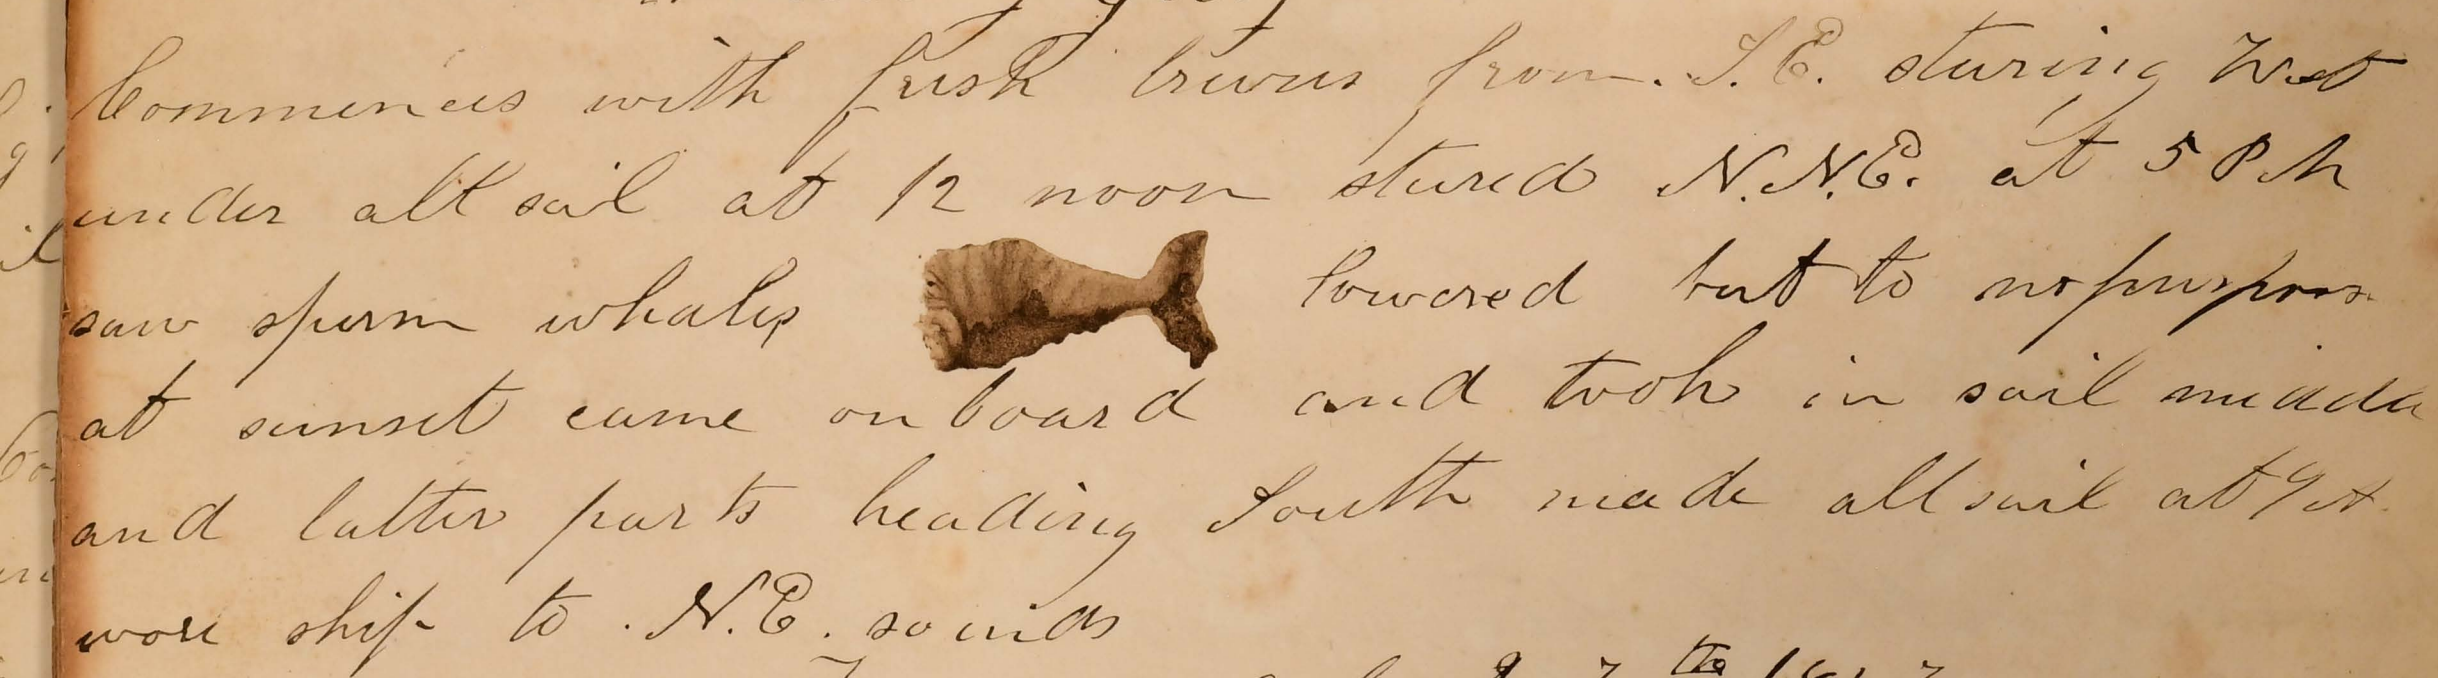 Commences with fresh breezes from S.E. stering West
under all sail at 12 noon stered N.N.E. at 5 P M
saw sperm whales lowered but to no purpose
at sunset came on board and took in sail middle
and latter parts heading South made all sail at 9 A
wore ship to N.E. so ends